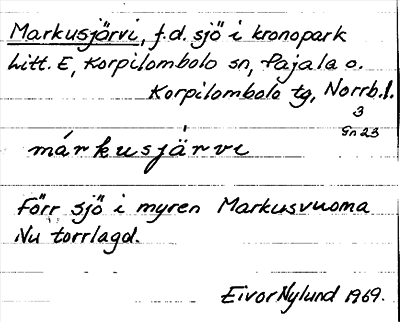 Markusjärvi, f.d. sjö i kronopark
Litt. E, Korpilombolo sn, Pajala o.
Korpilombolo tg, Norrb.l.
3
Gn 23
márkusjärvi
Förr sjö i myren Markusvuoma
Nu torrlagd.
Eivor Nylund 1969.